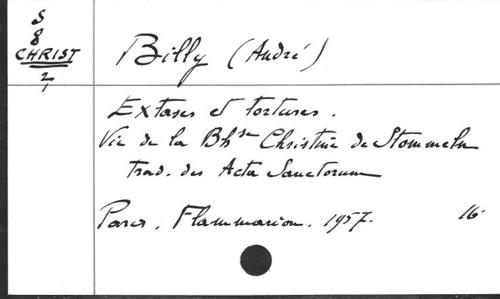 S
8
CHRIST
2
Billy (André)
Extases et tortures.
Vie de la Bhse Christine de Stommeln
trad. des Acta Sanctorum
Paris, Flammarion. 1957. 16.